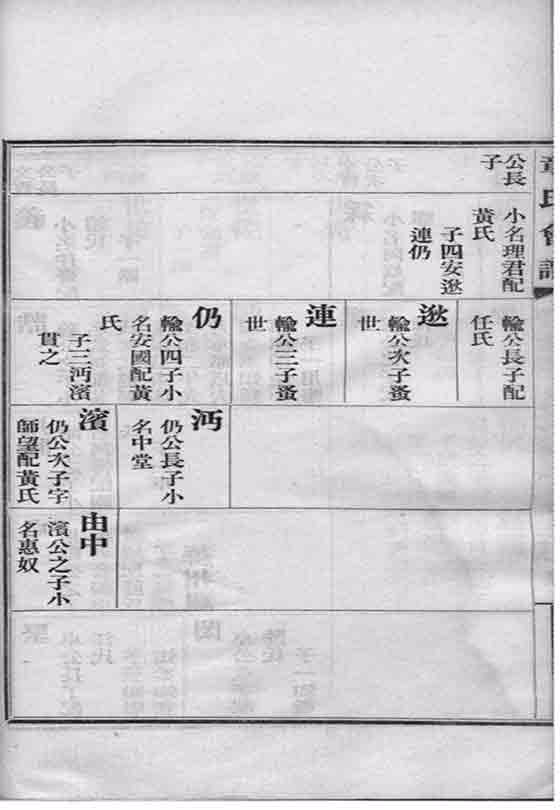 章氏會譜
公長
子
小名理君配
黃氏
子四安逖
連仍
緰公長子配
任氏
逖
緰公次子蚤
世
連
緰公三子蚤
世
仍
緰公四子小
名安國配黃
氏
子三沔濱
貫之
沔
仍公長子小
名中堂
濱
仍公次子字
師望配黃氏
由中
濱公之子小
名惠奴